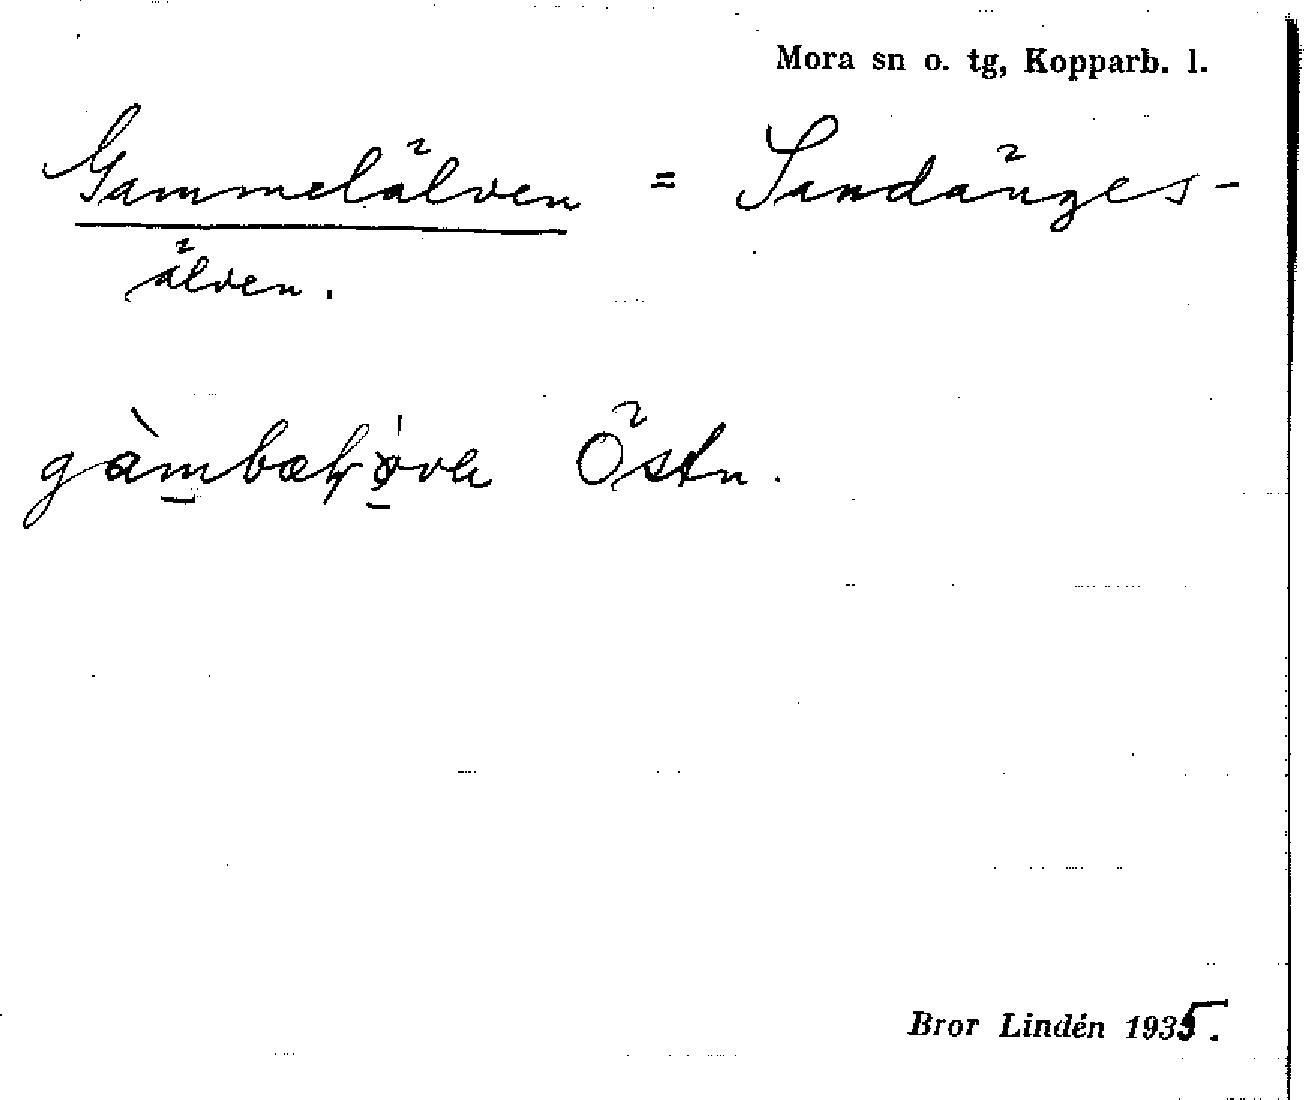 Mora sn o. tg, Kopparb. l.
Gammelälven = Sandänges-
älven.
Östn.
Bror Lindén 1935.